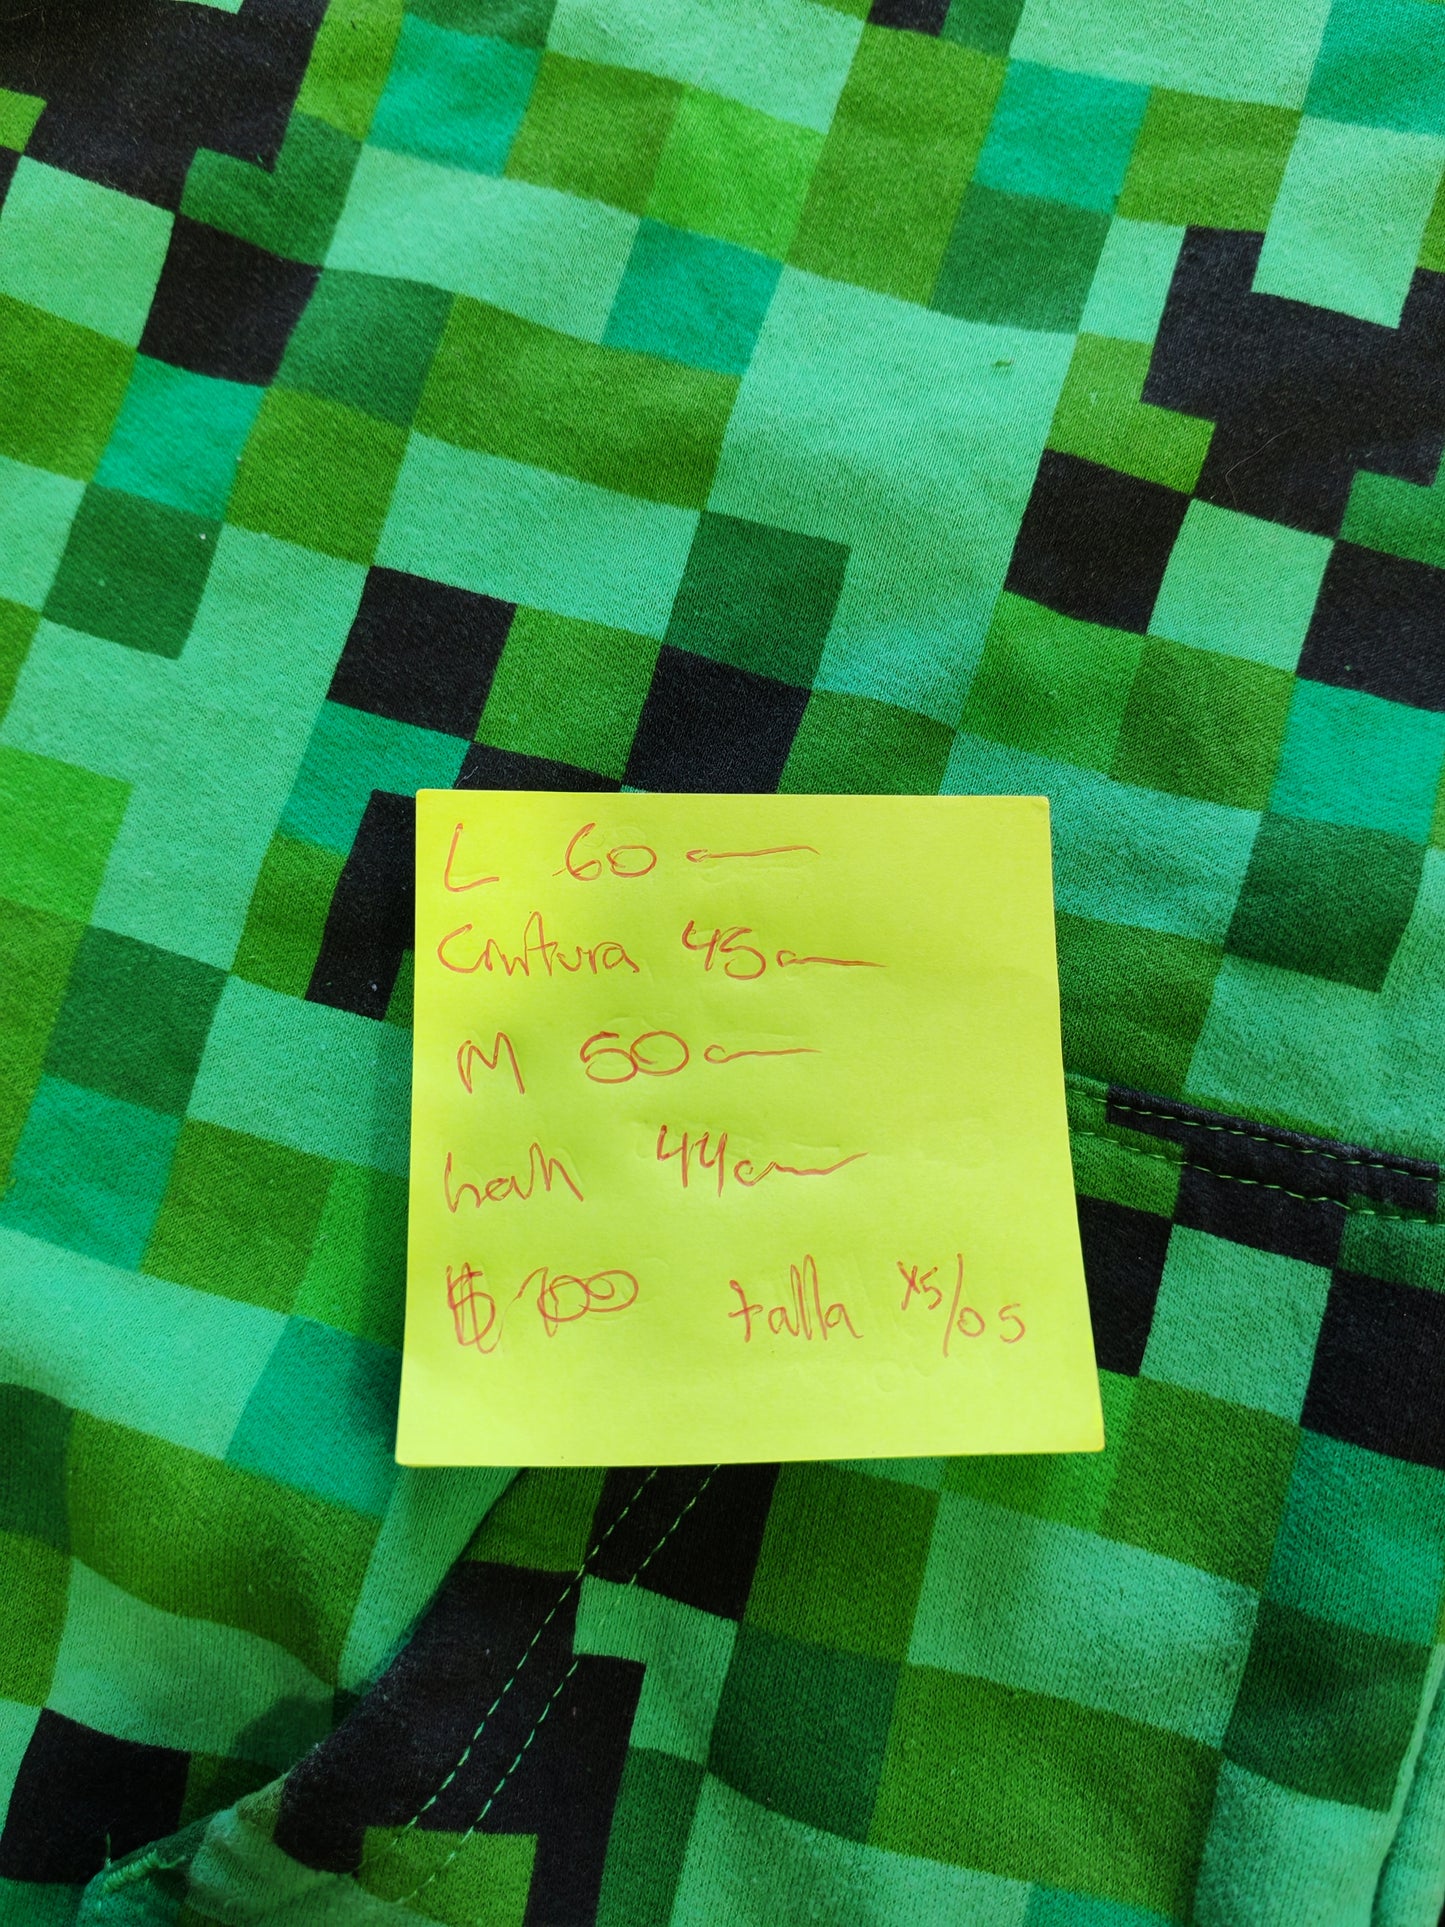 L 60 cm
Cintura 45 cm
M 50 cm
44 cm
talla xs/o s